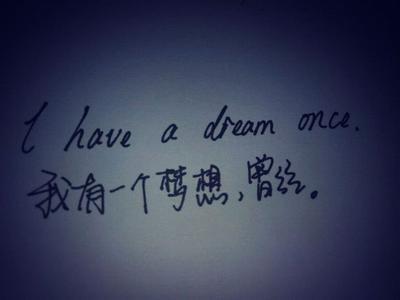 I have a dream once.
我有一个梦想，曾经。